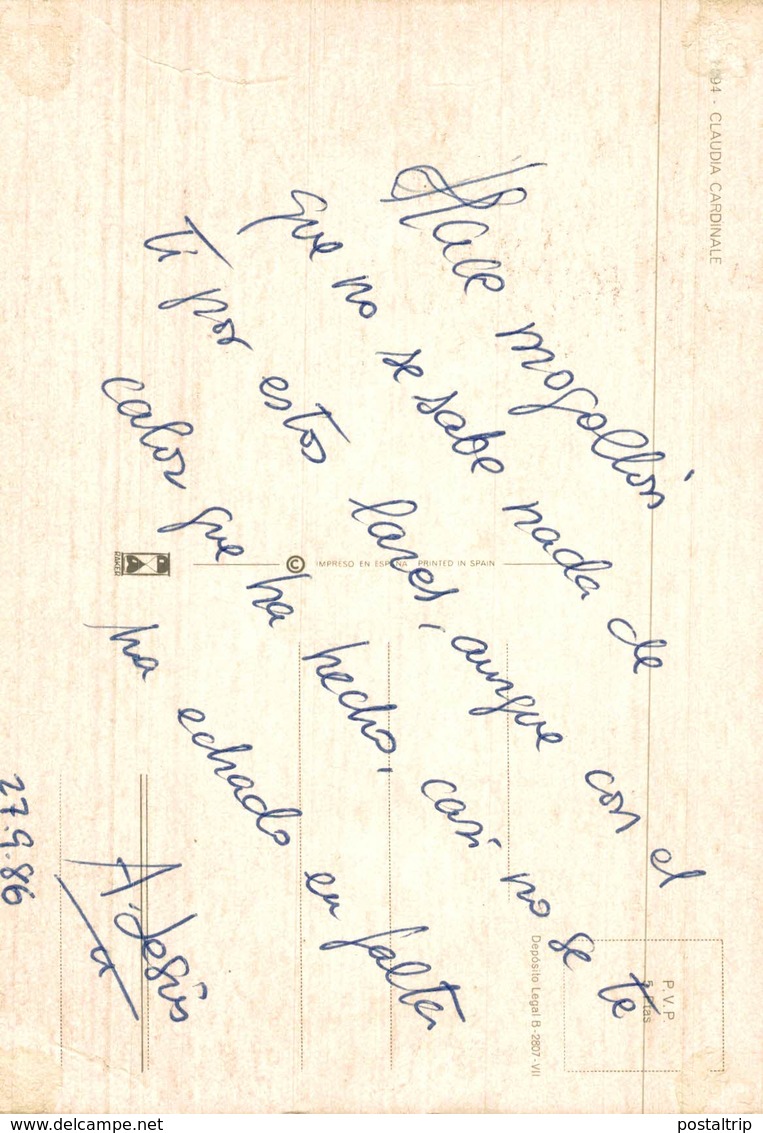 1894 - CLAUDIA CARDINALE
Hace mogollón
que no se sabe nada de
ti por estos lares, aunque con el
calor que ha hecho, casi no se te
ha echado en falta
A. Jesús
27.9.86
RAKER
© IMPRESO EN ESPAÑA PRINTED IN SPAIN
Depósito Legal B-2807-VII
P.V.P.
5 Ptas
www.delcampe.net
postaltrip